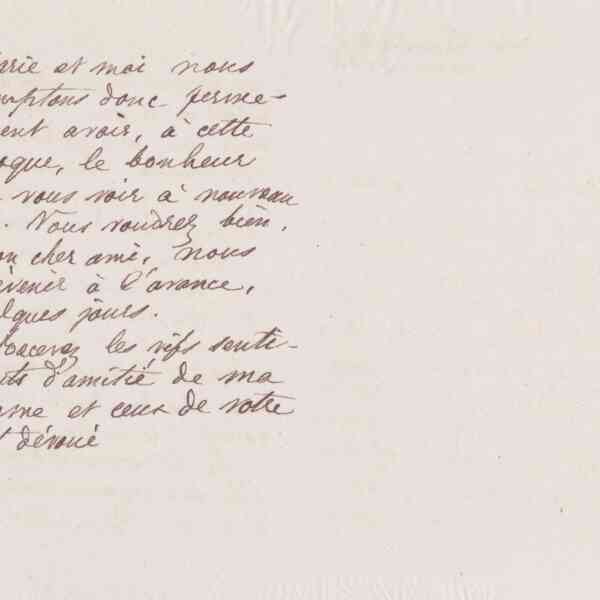 rie et moi nous
mptons donc ferme-
ent avoir, à cette
oque, le bonheur
vous voir à nouveau
. Vous voudrez bien,
on cher ami, nous
évenir à l'avance,
lques jours.
les vifs senti-
ts d'amitié de ma
me et ceux de votre
t dévoué